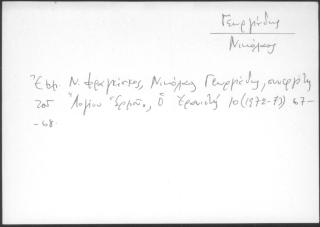 Γεωργιάδης
Νικόλαος
Ἐμμ. Ν. Φραγκίσκος, Νικόλαος Γεωργιάδης, συνεργάτης
τοῦ "Λογίου Ἑρμοῦ", Ὁ Ἐρανιστής 10 (1972-73) 67-
-68.